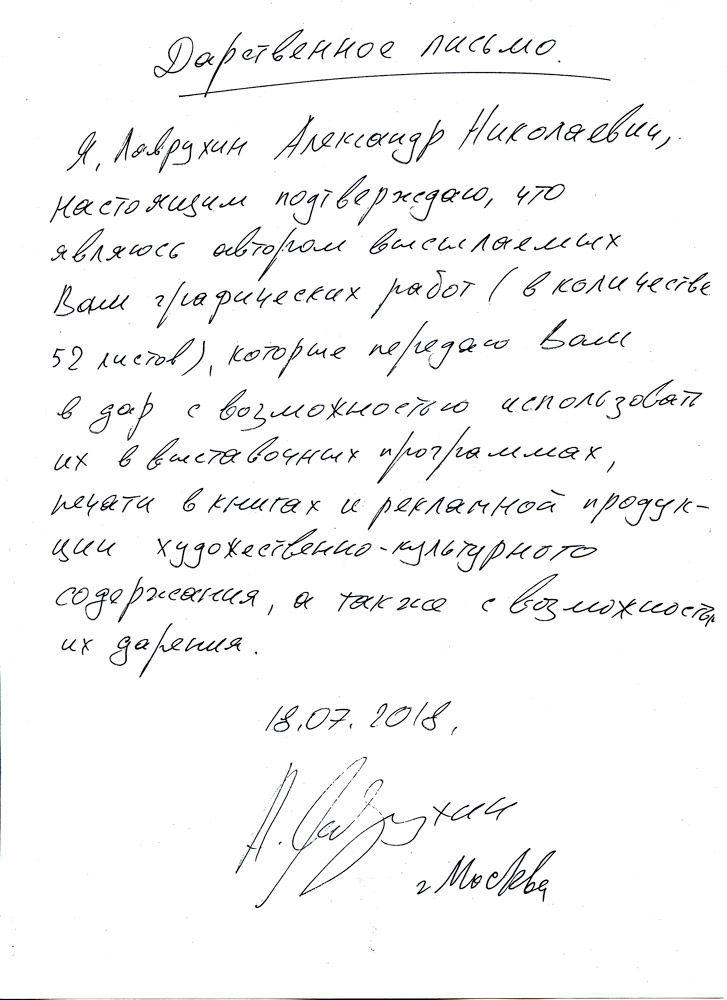 Дарственное письмо.
Я, Лаврухин Александр Николаевич,
настоящим подтверждаю, что
являюсь автором высылаемых
Вам графических работ (в количестве
52 листов), которые передаю Вам
в дар с возможностью использовать
их в выставочных программах,
печати в книгах и рекламной продук-
ции художественно-культурного
содержания, а также с возможностью
их дарения.
18.07.2018.
А. Лаврухин
г Москва